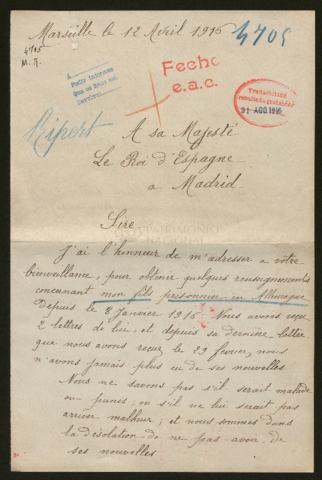 Marseille le 12 Avril 1916
4705
4705
M. N.
Fecho
e.a.c.
31 AGO 1916
Ripert
A sa Majesté
Le Roi d'Espagne
a Madrid
Sire,
J'ai l'honneur de m'adresser a votre
bienveillance, pour obtenir quelques renseignements
concernant mon fils prisonnier en Allemagne
depuis le 8 Janvier 1916. Nous avons reçu
2 lettres de lui, et depuis sa dernière lettre
que nous avons reçu le 29 fevrier, nous
n'avons jamais plus eu de ses nouvelles
Nous ne savons pas s'il serait malade
ou puni, ou s'il ne lui serait pas
arriver malheur, et nous sommes dans
la désolation de ne pas avoir de
ses nouvelles